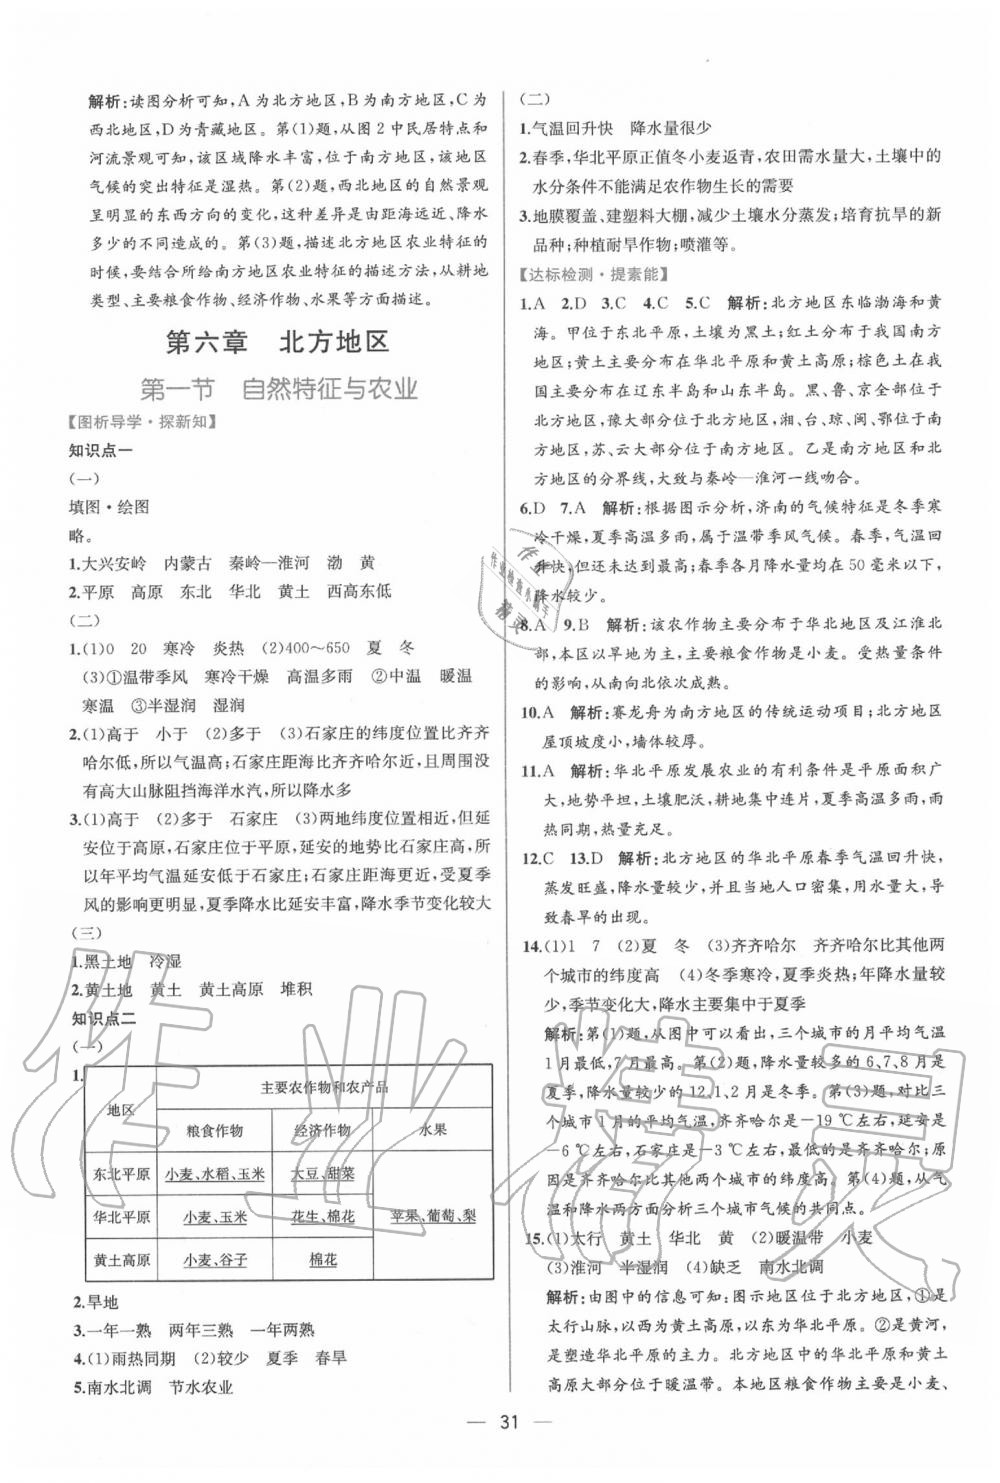 解析:读图分析可知,A 为北方地区,B 为南方地区,C 为
西北地区,D 为青藏地区。第(1)题,从图 2 中民居特点和
河流景观可知,该区域降水丰富,位于南方地区,该地区
气候的突出特征是湿热。第(2)题,西北地区的自然景观
呈明显的东西方向的变化,这种差异是由距海远近、降水
多少的不同造成的。第(3)题,描述北方地区农业特征的
时候,要结合所给南方地区农业特征的描述方法,从耕地
类型、主要粮食作物、经济作物、水果等方面描述。
第六章 北方地区
第一节 自然特征与农业
【图析导学·探新知】
知识点一
(一)
填图·绘图
略。
1.大兴安岭 内蒙古 秦岭—淮河 渤 黄
2.平原 高原 东北 华北 黄土 西高东低
(二)
1.(1)0 20 寒冷 炎热 (2)400～650 夏 冬
(3)①温带季风 寒冷干燥 高温多雨 ②中温 暖温
寒温 ③半湿润 湿润
2.(1)高于 小于 (2)多于 (3)石家庄的纬度位置比齐齐
哈尔低,所以气温高;石家庄距海比齐齐哈尔近,且周围
没有高大山脉阻挡海洋水汽,所以降水多
3.(1)高于 (2)多于 石家庄 (3)两地纬度位置相近,但延
安位于高原,石家庄位于平原,延安的地势比石家庄高,所
以年平均气温延安低于石家庄;石家庄距海更近,受夏季
风的影响更明显,夏季降水比延安丰富,降水季节变化较大
(三)
1.黑土地 冷湿
2.黄土地 黄土 黄土高原 堆积
知识点二
(一)
1.
地区 主要农作物和农产品
粮食作物 经济作物 水果
东北平原 小麦、水稻、玉米 大豆、甜菜
华北平原 小麦、玉米 花生、棉花 苹果、葡萄、梨
黄土高原 小麦、谷子 棉花
2.旱地
3.一年一熟 两年三熟 一年两熟
4.(1)雨热同期 (2)较少 夏季 春旱
5.南水北调 节水农业
(二)
1.气温回升快 降水量很少
2.春季,华北平原正值冬小麦返青,农田需水量大,土壤中的
水分条件不能满足农作物生长的需要
3.地膜覆盖、建塑料大棚,减少土壤水分蒸发;培育抗旱的新
品种;种植耐旱作物;喷灌等。
【达标检测·提素能】
1.A 2.D 3.C 4.C 5.C 解析:北方地区东临渤海和黄
海。甲位于东北平原,土壤为黑土;红土分布于我国南方
地区;黄土主要分布在华北平原和黄土高原;棕色土在我
国主要分布在辽东半岛和山东半岛。黑、鲁、京全部位于
北方地区,豫大部分位于北方地区,湘、台、琼、闽、鄂位于
南方地区,苏、云大部分位于南方地区。乙是南方地区和北
方地区的分界线,大致与秦岭—淮河一线吻合。
6.D 7.A 解析:根据图示分析,济南的气候特征是冬季寒
冷干燥,夏季高温多雨,属于温带季风气候。春季,气温回
升快,但还未达到最高;春季各月降水量均在 50 毫米以下,
降水较少。
8.A 9.B 解析:该农作物主要分布于华北地区及江淮北
部,本区以旱地为主,主要粮食作物是小麦。受热量条件
的影响,从南向北依次成熟。
10.A 解析:赛龙舟为南方地区的传统运动项目;北方地区
屋顶坡度小,墙体较厚。
11.A 解析:华北平原发展农业的有利条件是平原面积广
大,地势平坦,土壤肥沃,耕地集中连片,夏季高温多雨,雨
热同期,热量充足。
12.C 13.D 解析:北方地区的华北平原春季气温回升快,
蒸发旺盛,降水量较少,并且当地人口密集,用水量大,导
致春旱的出现。
14.(1)1 7 (2)夏 冬 (3)齐齐哈尔 齐齐哈尔比其他两
个城市的纬度高 (4)冬季寒冷,夏季炎热;年降水量较
少,季节变化大,降水主要集中于夏季
解析:第(1)题,从图中可以看出,三个城市的月平均气温
1 月最低,7 月最高。第(2)题,降水量较多的 6、7、8 月是
夏季,降水量较少的 12、1、2 月是冬季。第(3)题,对比三
个城市 1 月的平均气温,齐齐哈尔是－19 ℃左右,延安是
－6 ℃左右,石家庄是－3 ℃左右,最低的是齐齐哈尔;原
因是齐齐哈尔比其他两个城市的纬度高。第(4)题,从气
温和降水两方面分析三个城市气候的共同点。
15.(1)太行 黄土 华北 黄 (2)暖温带 小麦
(3)淮河 半湿润 (4)缺乏 南水北调
解析:由图中的信息可知:图示地区位于北方地区,①是
太行山脉,以西为黄土高原,以东为华北平原。②是黄河,
是塑造华北平原的主力。北方地区中的华北平原和黄土
高原大部分位于暖温带。本地区粮食作物主要是小麦、
— 31 —
作业精灵
作业检查小帮手
作业
精灵